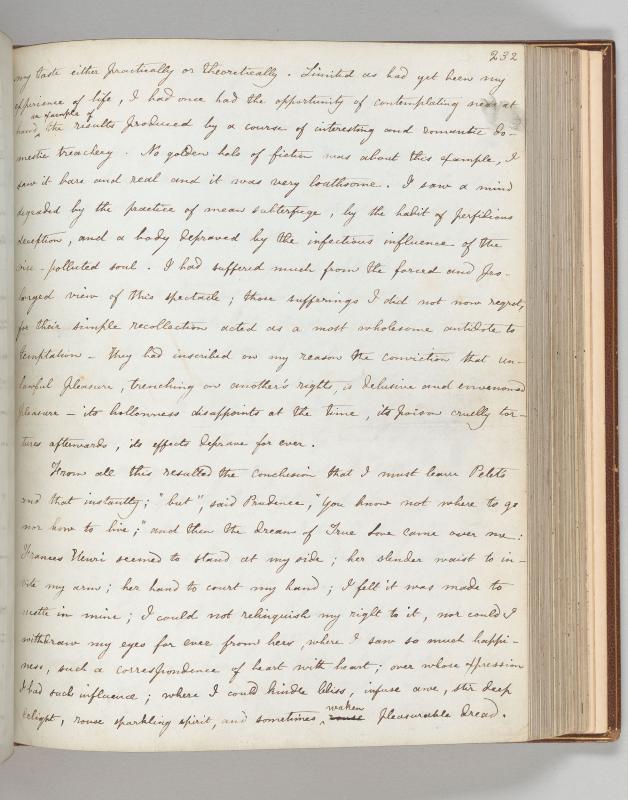 232
my taste either practically or theoretically. Limited as had yet been my
experience of life, I had once had the opportunity of contemplating near at
an example of
hand, the results produced by a course of interesting and romantic do-
mestic treachery. No golden halo of fiction was about this example, I
saw it bare and real and it was very loathsome. I saw a mind
degraded by the practice of mean subterfuge, by the habit of perfidious
deception, and a body depraved by the infectious influence of the
vice-polluted soul. I had suffered much from the forced and pro-
longed view of this spectacle; those sufferings I did not now regret,
for their simple recollection acted as a most wholesome antidote to
temptation - They had inscribed on my reason the conviction that un-
lawful pleasure, trenching on another's rights, is delusive and envenomed
pleasure - its hollowness disappoints at the time, its poison cruelly tor-
tures afterwards, its effects deprave for ever.
From all this resulted the conclusion that I must leave Pelet's
and that instantly; "but", said Prudence, "You know not where to go
nor how to live;" and then the dream of True Love came over me:
Frances Henri seemed to stand at my side; her slender waist to in-
vite my arm; her hand to court my hand; I felt it was made to
nestle in mine; I could not relinquish my right to it, nor could I
withdraw my eyes for ever from hers, where I saw so much happi-
ness, such a correspondence of heart with heart; over whose expression
I had such influence; where I could kindle bliss, infuse awe, stir deep
waken
delight, rouse sparkling spirit, and sometimes rouse pleasurable dread.